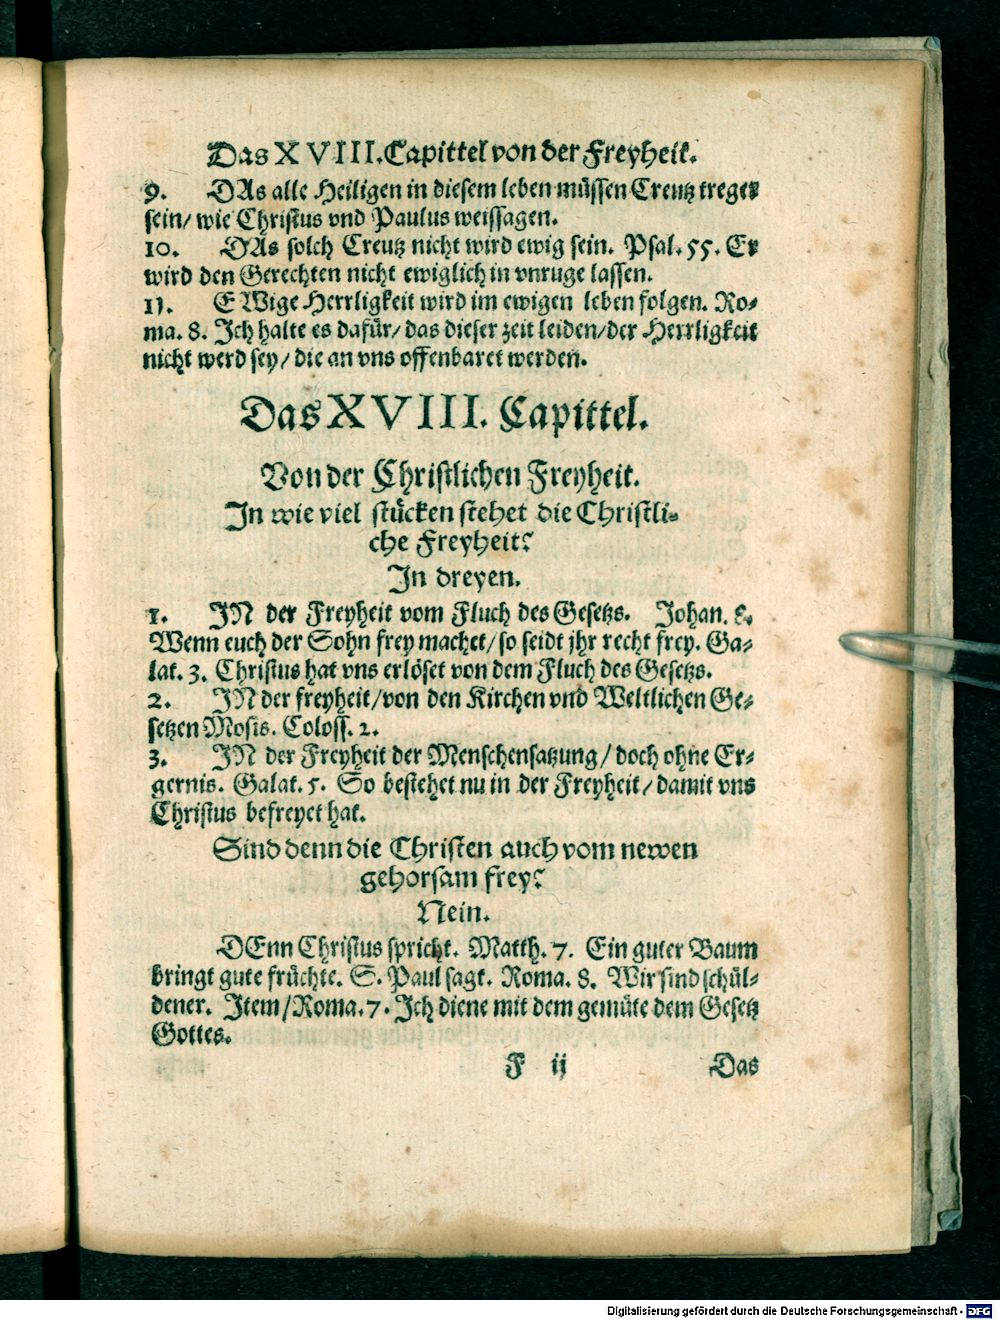 Das XVIII. Capittel von der Freyheit.
9. DAs alle Heiligen in diesem leben müssen Creutz treger
sein/ wie Christus vnd Paulus weissagen.
10. DAs solch Creutz nicht wird ewig sein. Psal. 55. Er
wird den Gerechten nicht ewiglich in vnruge lassen.
11. EWige Herrligkeit wird im ewigen leben folgen. Ro-
ma. 8. Ich halte es dafür/ das dieser zeit leiden/ der Herrligkeit
nicht werd sey/ die an vns offenbaret werden.
Das XVIII. Capittel.
Von der Christlichen Freyheit.
In wie viel stücken stehet die Christli-
che Freyheit?
In dreyen.
1. IN der Freyheit vom Fluch des Gesetzs. Johan. 8.
Wenn euch der Sohn frey machet/ so seidt jhr recht frey. Ga-
lat. 3. Christus hat vns erlöset von dem Fluch des Gesetzs.
2. IN der freyheit/ von den Kirchen vnd Weltlichen Ge-
setzen Mosis. Coloss. 2.
3. IN der Freyheit der Menschensatzung/ doch ohne Er-
gernis. Galat. 5. So bestehet nu in der Freyheit/ damit vns
Christus befreyet hat.
Sind denn die Christen auch vom newen
gehorsam frey?
Nein.
DEnn Christus spricht. Matth. 7. Ein guter Baum
bringt gute früchte. S. Paul sagt. Roma. 8. Wir sind schül-
dener. Item/ Roma. 7. Ich diene mit dem gemüte dem Gesetz
Gottes.
F ij Das
Digitalisierung gefördert durch die Deutsche Forschungsgemeinschaft - DFG